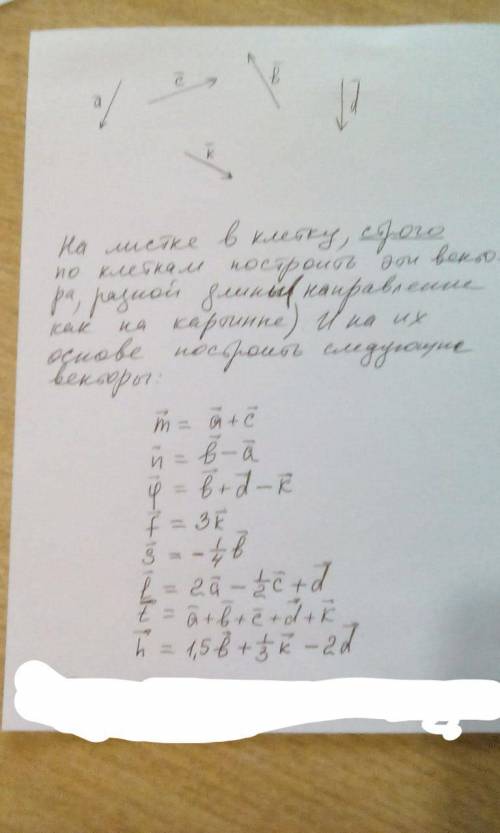 a⃗ c⃗ b⃗ d⃗
k⃗
На листке в клетку, строго
по клеткам построить эти векто-
ра, разной длины (направление
как на картинке) И на их
основе построить следующие
векторы:
m⃗ = a⃗ + c⃗
n⃗ = b⃗ - a⃗
φ⃗ = b⃗ + d⃗ - k⃗
f⃗ = 3k⃗
s⃗ = -1/4 b⃗
l⃗ = 2a⃗ - 1/2 c⃗ + d⃗
t⃗ = a⃗ + b⃗ + c⃗ + d⃗ + k⃗
h⃗ = 1,5b⃗ + 1/3 k⃗ - 2d⃗